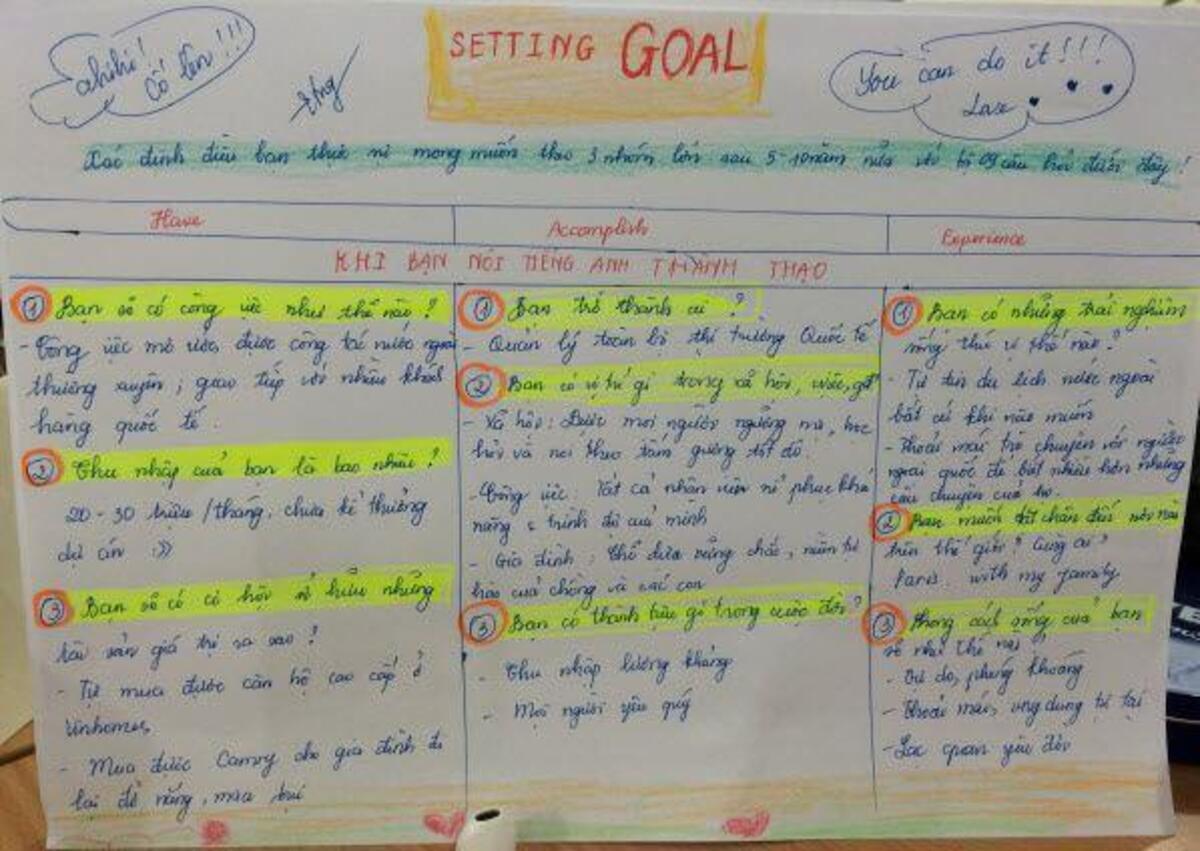 SETTING GOAL
ahihi!
Cố lên!!!
You can do it!!!
Xác định điều bạn thực sự mong muốn theo 3 nhóm lớn sau 5-10 năm nữa với bộ 09 câu hỏi dưới đây!
Have
Accomplish
Experience
KHI BẠN NÓI TIẾNG ANH THÀNH THẠO
① Bạn sẽ có công việc như thế nào?
- Công việc mơ ước, được công tác nước ngoài
thường xuyên, giao tiếp với nhiều khách
hàng quốc tế.
② Thu nhập của bạn là bao nhiêu?
20-30 triệu/tháng, chưa kể thưởng
dự án :))
③ Bạn sẽ có cơ hội sở hữu những
tài sản giá trị ra sao?
- Tự mua được căn hộ cao cấp ở
Vinhomes
- Mua được Camry cho gia đình đi
lại đỡ nắng, mưa bụi
① Bạn trở thành ai?
- Quản lý toàn bộ thị trường Quốc tế
② Bạn có vị trí gì trong xã hội, cviệc, gđ?
- Xã hội: Được mọi người ngưỡng mộ, học
hỏi và noi theo tấm gương tốt đó.
- Công việc: Tất cả nhân viên nể phục khả
năng & trình độ của mình
- Gia đình: Chỗ dựa vững chắc, niềm tự
hào của chồng và các con
③ Bạn có thành tựu gì trong cuộc đời?
- Thu nhập lương khủng
- Mọi người yêu quý
① Bạn có những trải nghiệm
sống thú vị thế nào?
- Tự tin du lịch nước ngoài
bất cứ khi nào muốn
- Thoải mái trò chuyện với người
ngoại quốc để biết nhiều hơn những
câu chuyện của họ.
② Bạn muốn đặt chân đến nơi nào
trên thế giới? Cùng ai?
Paris. with my family
③ Phong cách sống của bạn
sẽ như thế nào
- Tự do, phóng khoáng
- Thoải mái, ung dung tự tại
- Lạc quan yêu đời